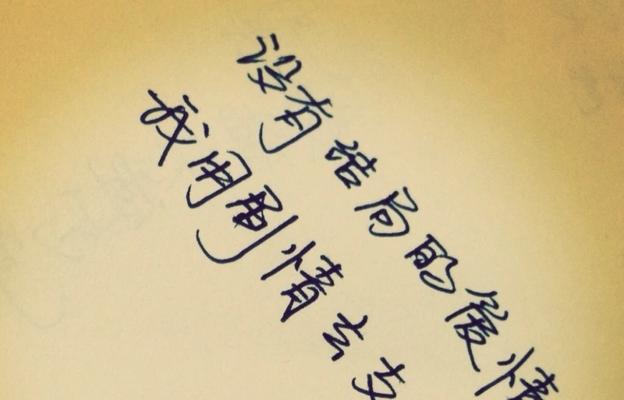 没有结局的爱情
我用剧情去